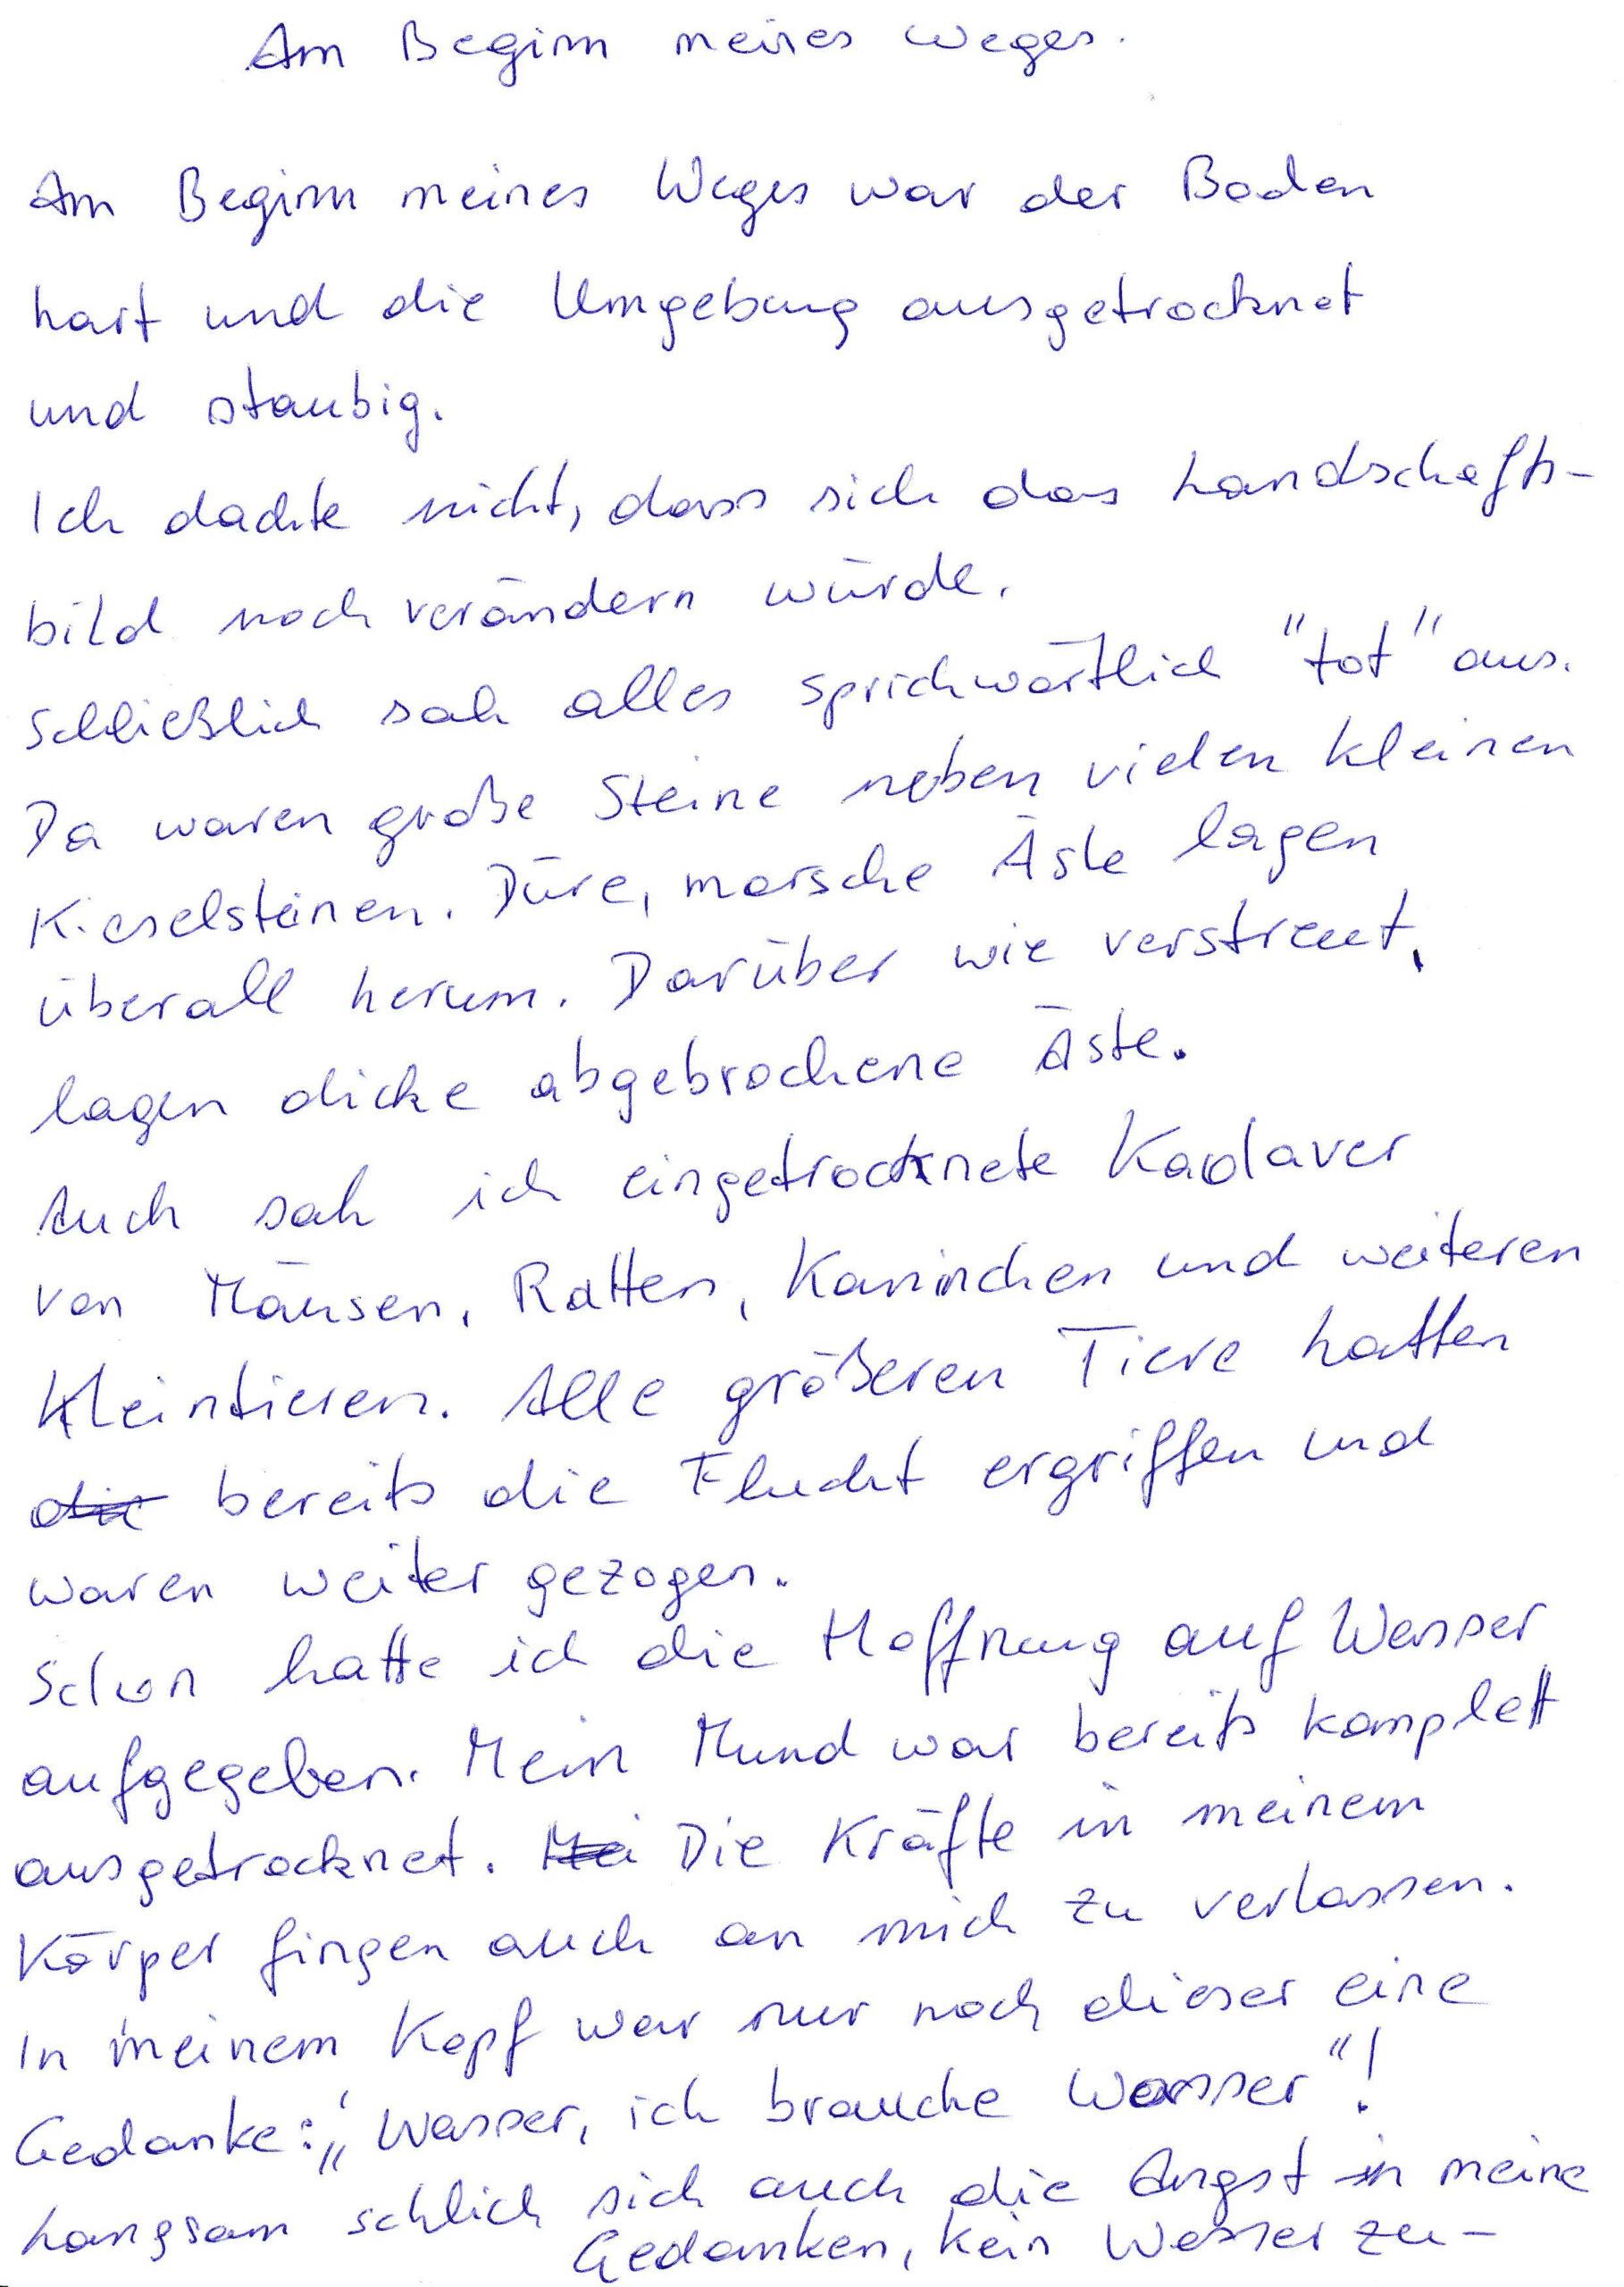 Am Beginn meines Weges.
Am Beginn meines Weges war der Boden
hart und die Umgebung ausgetrocknet
und staubig.
Ich dachte nicht, dass sich das Landschafts-
bild noch verändern würde.
Schließlich sah alles sprichwörtlich "tot" aus.
Da waren große Steine neben vielen kleinen
Kieselsteinen. Düre, morsche Äste lagen
überall herum. Darüber wie verstreut,
lagen dicke abgebrochene Äste.
Auch sah ich eingetrocknete Kadaver
von Mäusen, Ratten, Kaninchen und weiteren
Kleintieren. Alle größeren Tiere hatten
die bereits die Flucht ergriffen und
waren weiter gezogen.
Schon hatte ich die Hoffnung auf Wasser
aufgegeben. Mein Mund war bereits komplett
ausgetrocknet. Mei Die Kräfte in meinem
Körper fingen auch an mich zu verlassen.
In meinem Kopf war nur noch dieser eine
Gedanke: „Wasser, ich brauche Wasser"!
Langsam schlich sich auch die Angst in meine
Gedanken, kein Wasser zu-